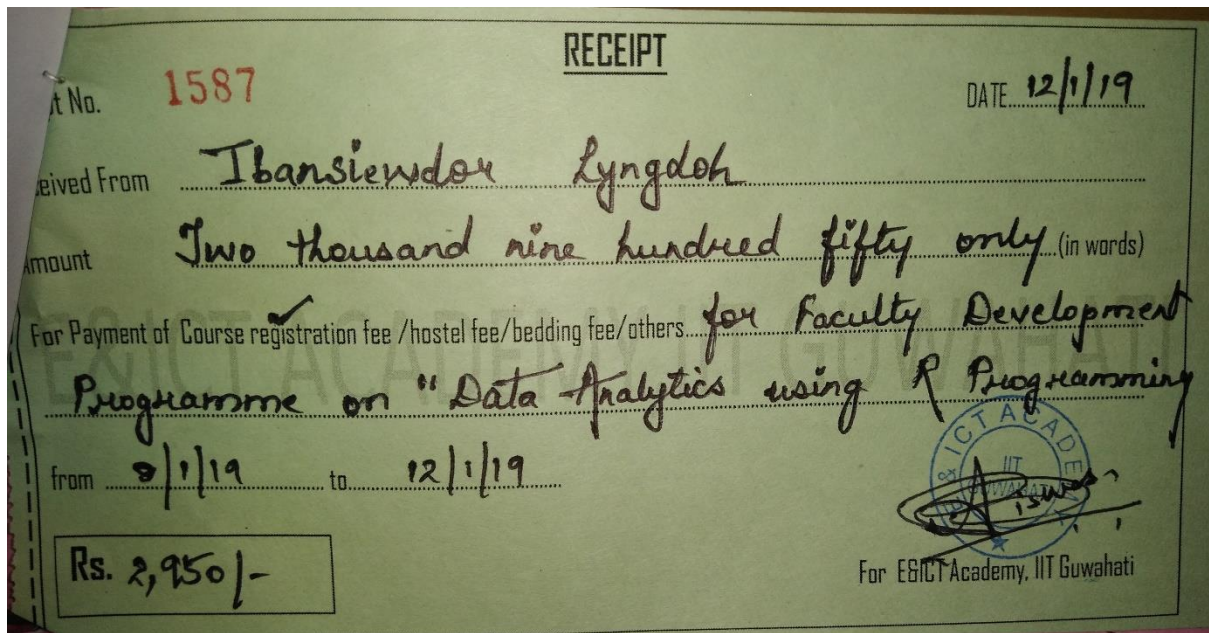 RECEIPT
t No. 1587 DATE 12/1/19
eived From Ibansiewdor Lyngdoh
Amount Two thousand nine hundred fifty only (in words)
For Payment of Course registration fee /hostel fee/bedding fee/others for Faculty Development
Programme on "Data Analytics using R Programming
from 8/1/19 to 12/1/19
E&ICT ACADEMY IIT GUWAHATI
E & ICT ACADEMY
IIT
GUWAHATI
Rs. 2,950/-
For E&ICT Academy, IIT Guwahati